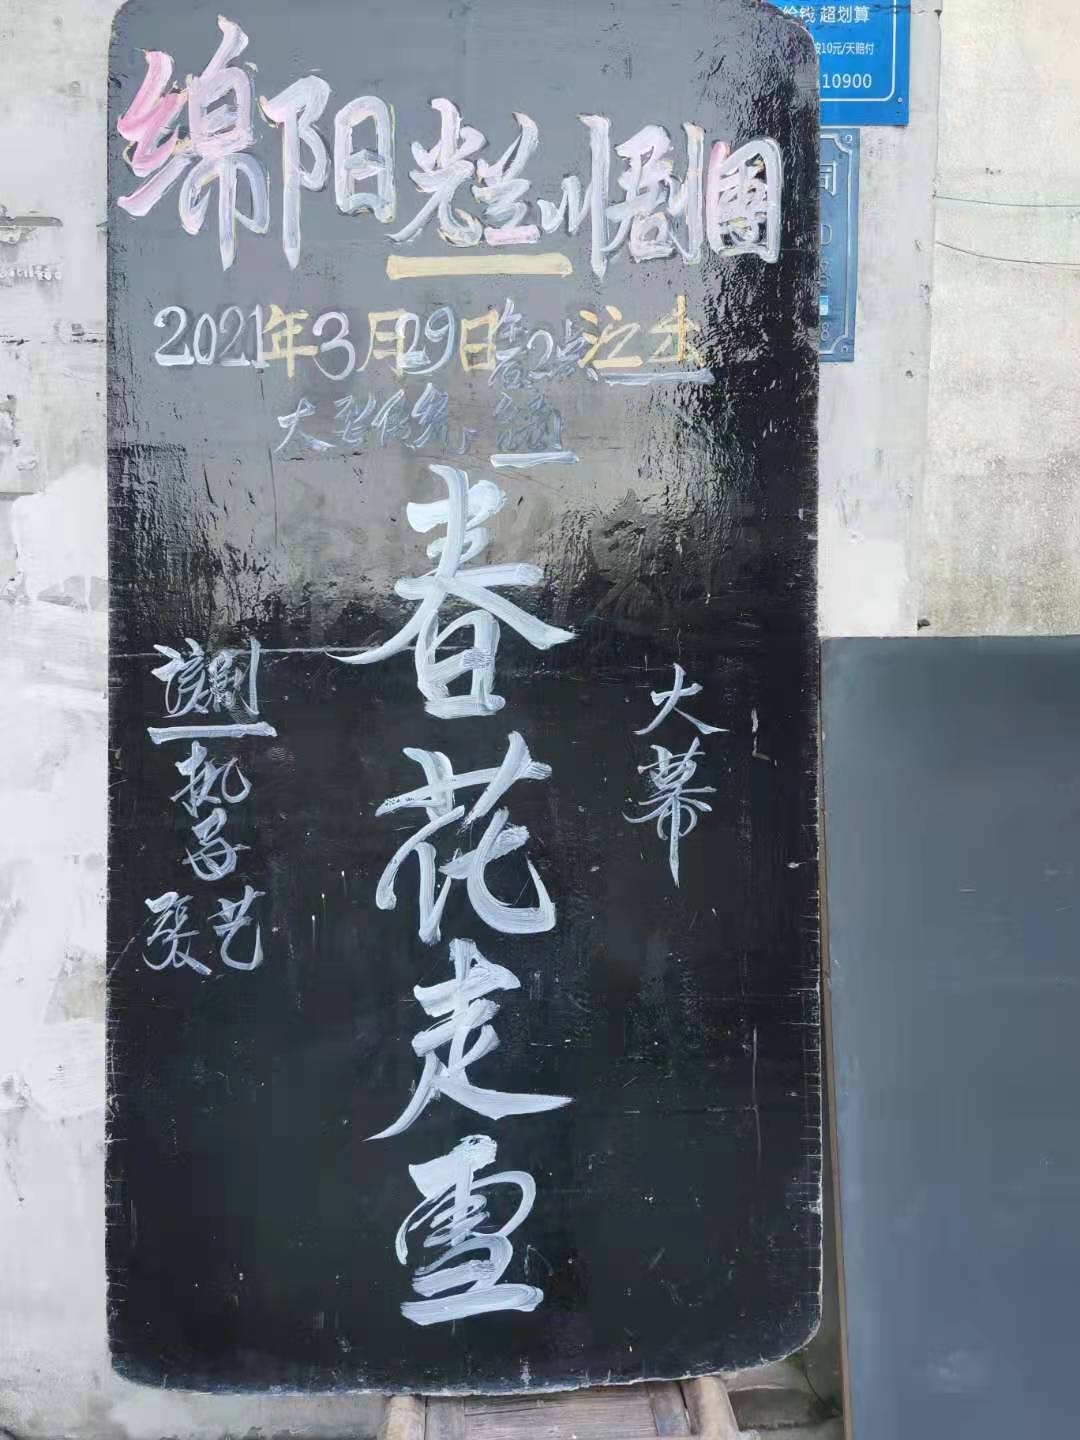 给钱 超划算
10元/天赔付
10900
绵阳光兰川剧團
2021年3月29日午后2点演出
大型传统
大幕
春花走雪
该剧
执子
張艺